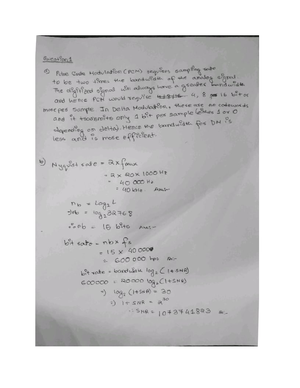 a) Pulse Code Modulation (PCM) requires sampling rate
to be two times the bandwidth of the analog signal
The digitized signal will always have a greater bandwidth
and hence PCM would require 4, 8 16 bit or
more per sample. In Delta Modulation, there are no codewords
and it transmits only 1 bit per sample (either 1 or 0
depending on delta). Hence the bandwidth for DM is
less and is more efficient.
b) Nyquist rate = 2 x fmax
= 2 x 20 x 1000 Hz
= 40 000 Hz
= 40 kHz Ans
nb = log2 L
= log2 32768
nb = 15 bits Ans
bit rate = nb x fs
= 15 x 40000
= 600 000 bps
bit rate = bandwidth log2 (1+SNR)
600000 = 20000 log2 (1+SNR)
=> log2 (1+SNR) = 30
=> 1+SNR = 2^30
SNR = 1073741823